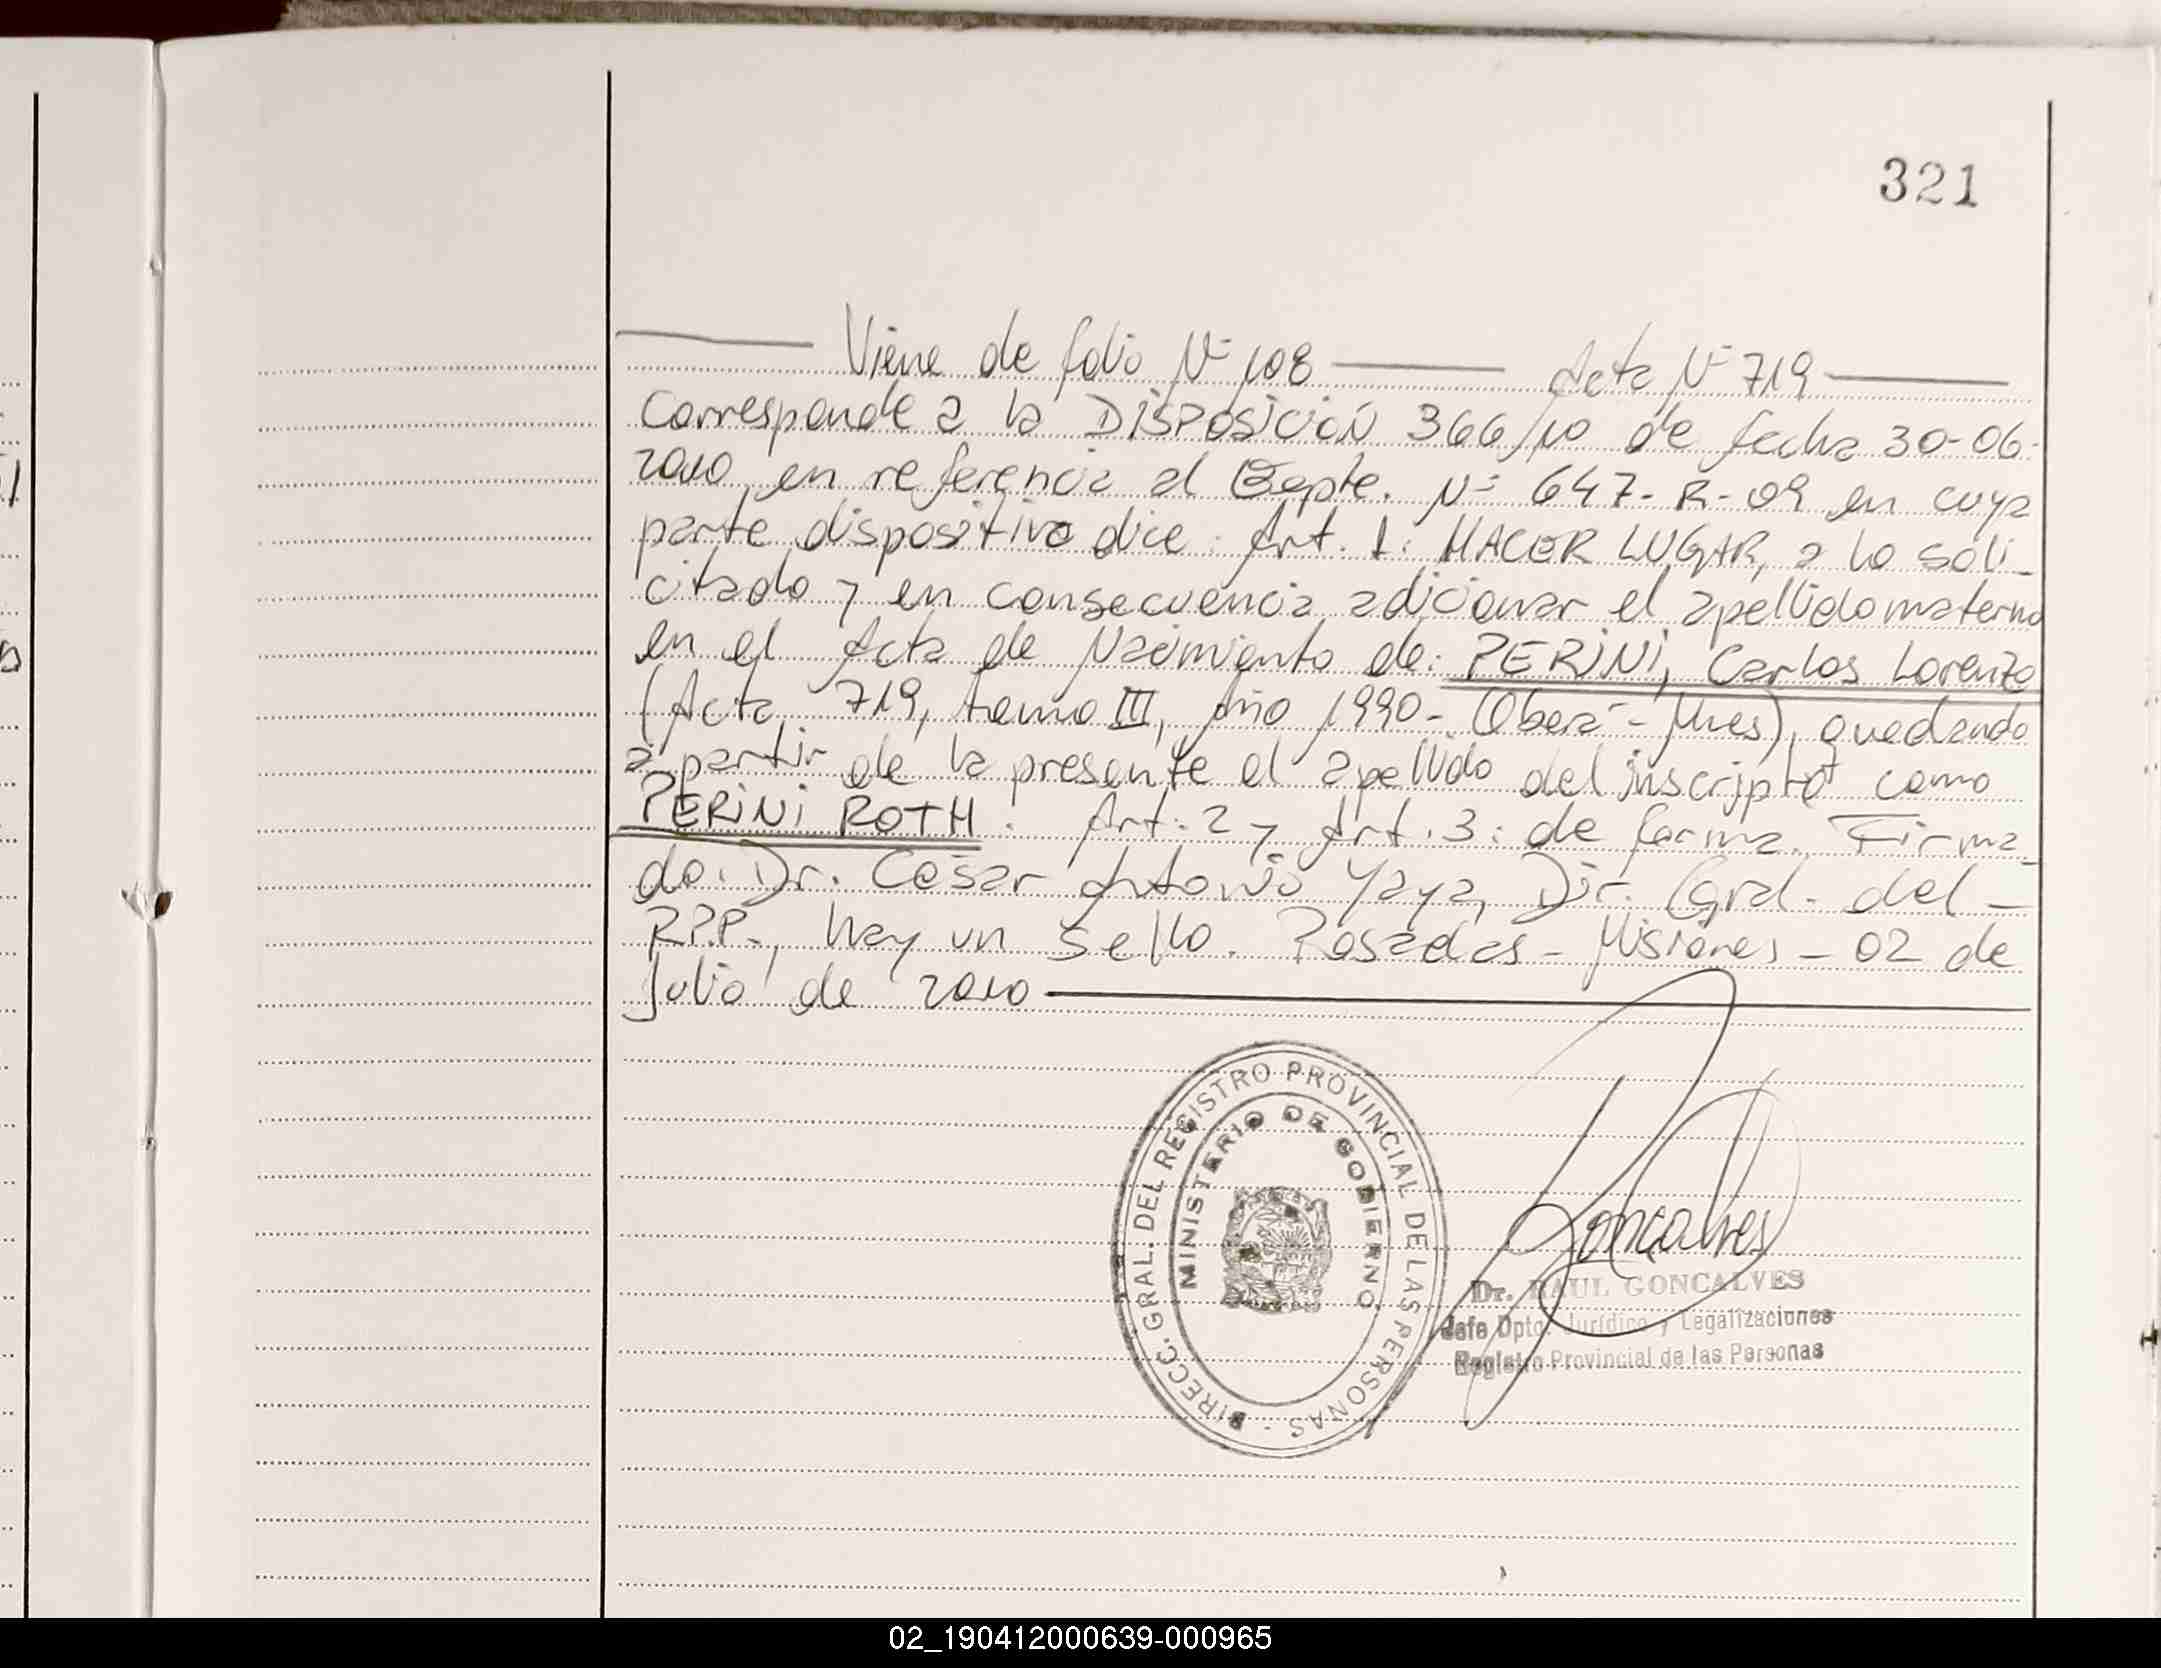 321
Viene de folio Nº 108 Acta Nº 719
Corresponde a la DISPOSICIÓN 366/10 de fecha 30-06-
2010, en referencia al Expte. Nº 647-R-09 en cuya
parte dispositiva dice: Art. 1: HACER LUGAR, a lo soli-
citado y en consecuencia adicionar el apellido materno
en el Acta de Nacimiento de: PERINI, Carlos Lorenzo
(Acta 719, tomo III, Año 1990- Oberá - Mnes), quedando
a partir de la presente el apellido del inscripto como
PERINI ROTH. Art: 2 y Art. 3: de forma. Firma-
do. Dr. César Antonio Yaya, Dir. Gral. del
RPP., hay un Sello. Posadas - Misiones - 02 de
Julio de 2010
DIRECC. GRAL. DEL REGISTRO PROVINCIAL DE LAS PERSONAS -
MINISTERIO DE GOBIERNO
Goncalves
Dr. RAUL GONCALVES
Jefe Dpto. Jurídico y Legalizaciones
Registro Provincial de las Personas
02_190412000639-000965